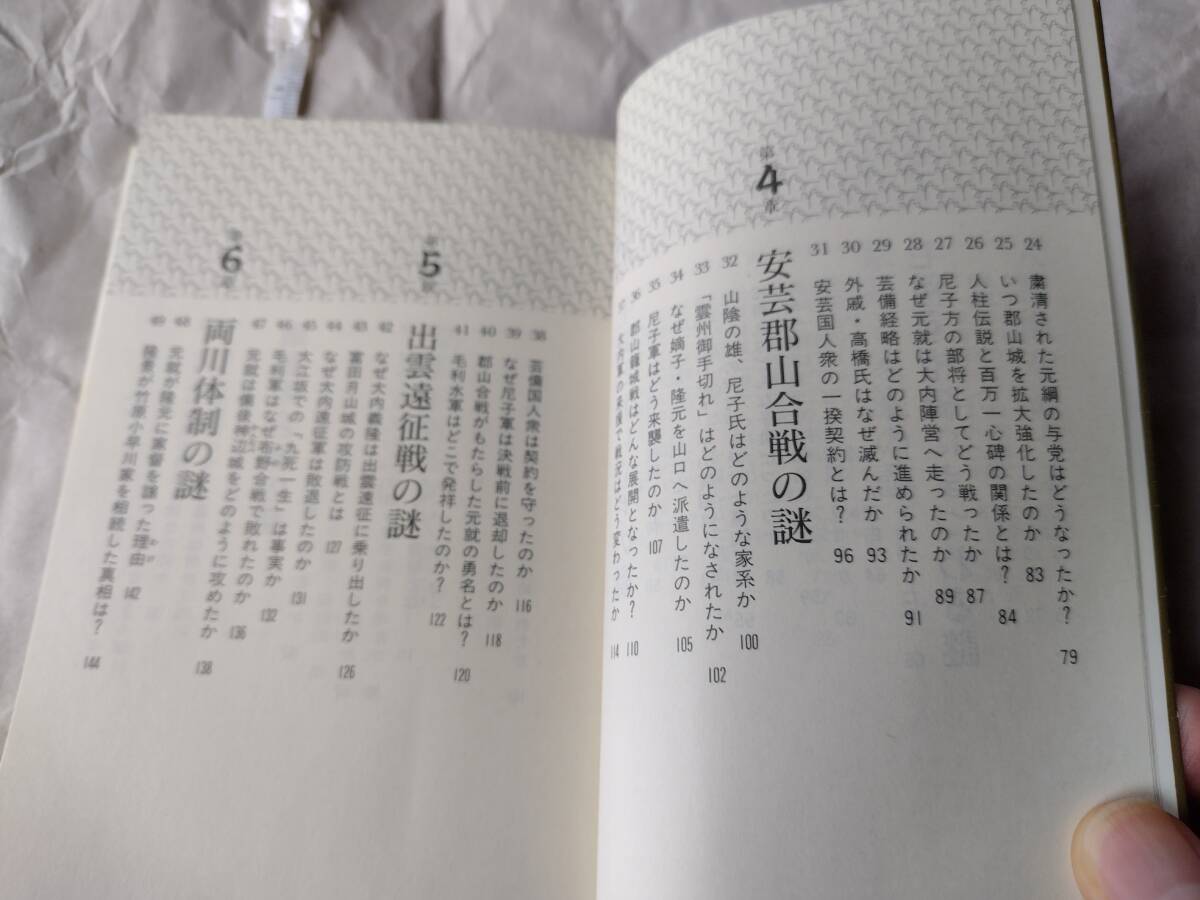 24 粛清された元綱の与党はどうなったか? 79
25 いつ郡山城を拡大強化したのか 83
26 人柱伝説と百万一心碑の関係とは? 84
27 尼子方の部将としてどう戦ったか 87
28 なぜ元就は大内陣営へ走ったのか 89
29 芸備経略はどのように進められたか 91
30 外戚・高橋氏はなぜ滅んだか 93
31 安芸国人衆の一揆契約とは? 96
第4章 安芸郡山合戦の謎
32 山陰の雄、尼子氏はどのような家系か 100
33 「雲州御手切れ」はどのようになされたか 102
34 なぜ嫡子・隆元を山口へ派遣したのか 105
35 尼子軍はどう来襲したのか 107
36 郡山籠城戦はどんな展開となったか? 110
37 大内軍の来援で戦況はどう変わったか 114
38 芸備国人衆は契約を守ったのか 116
39 なぜ尼子軍は決戦前に退却したのか 118
40 郡山合戦がもたらした元就の勇名とは? 120
41 毛利水軍はどこで発祥したのか? 122
第5章 出雲遠征戦の謎
42 なぜ大内義隆は出雲遠征に乗り出したか 126
43 富田月山城の攻防戦とは 127
44 なぜ大内遠征軍は敗退したのか 131
45 大江坂での「九死一生」は事実か 132
46 毛利軍はなぜ布野合戦で敗れたのか 136
47 元就は備後神辺城をどのように攻めたか 138
第6章 両川体制の謎
48 元就が隆元に家督を譲った理由 142
49 隆景が竹原小早川家を相続した真相は? 144